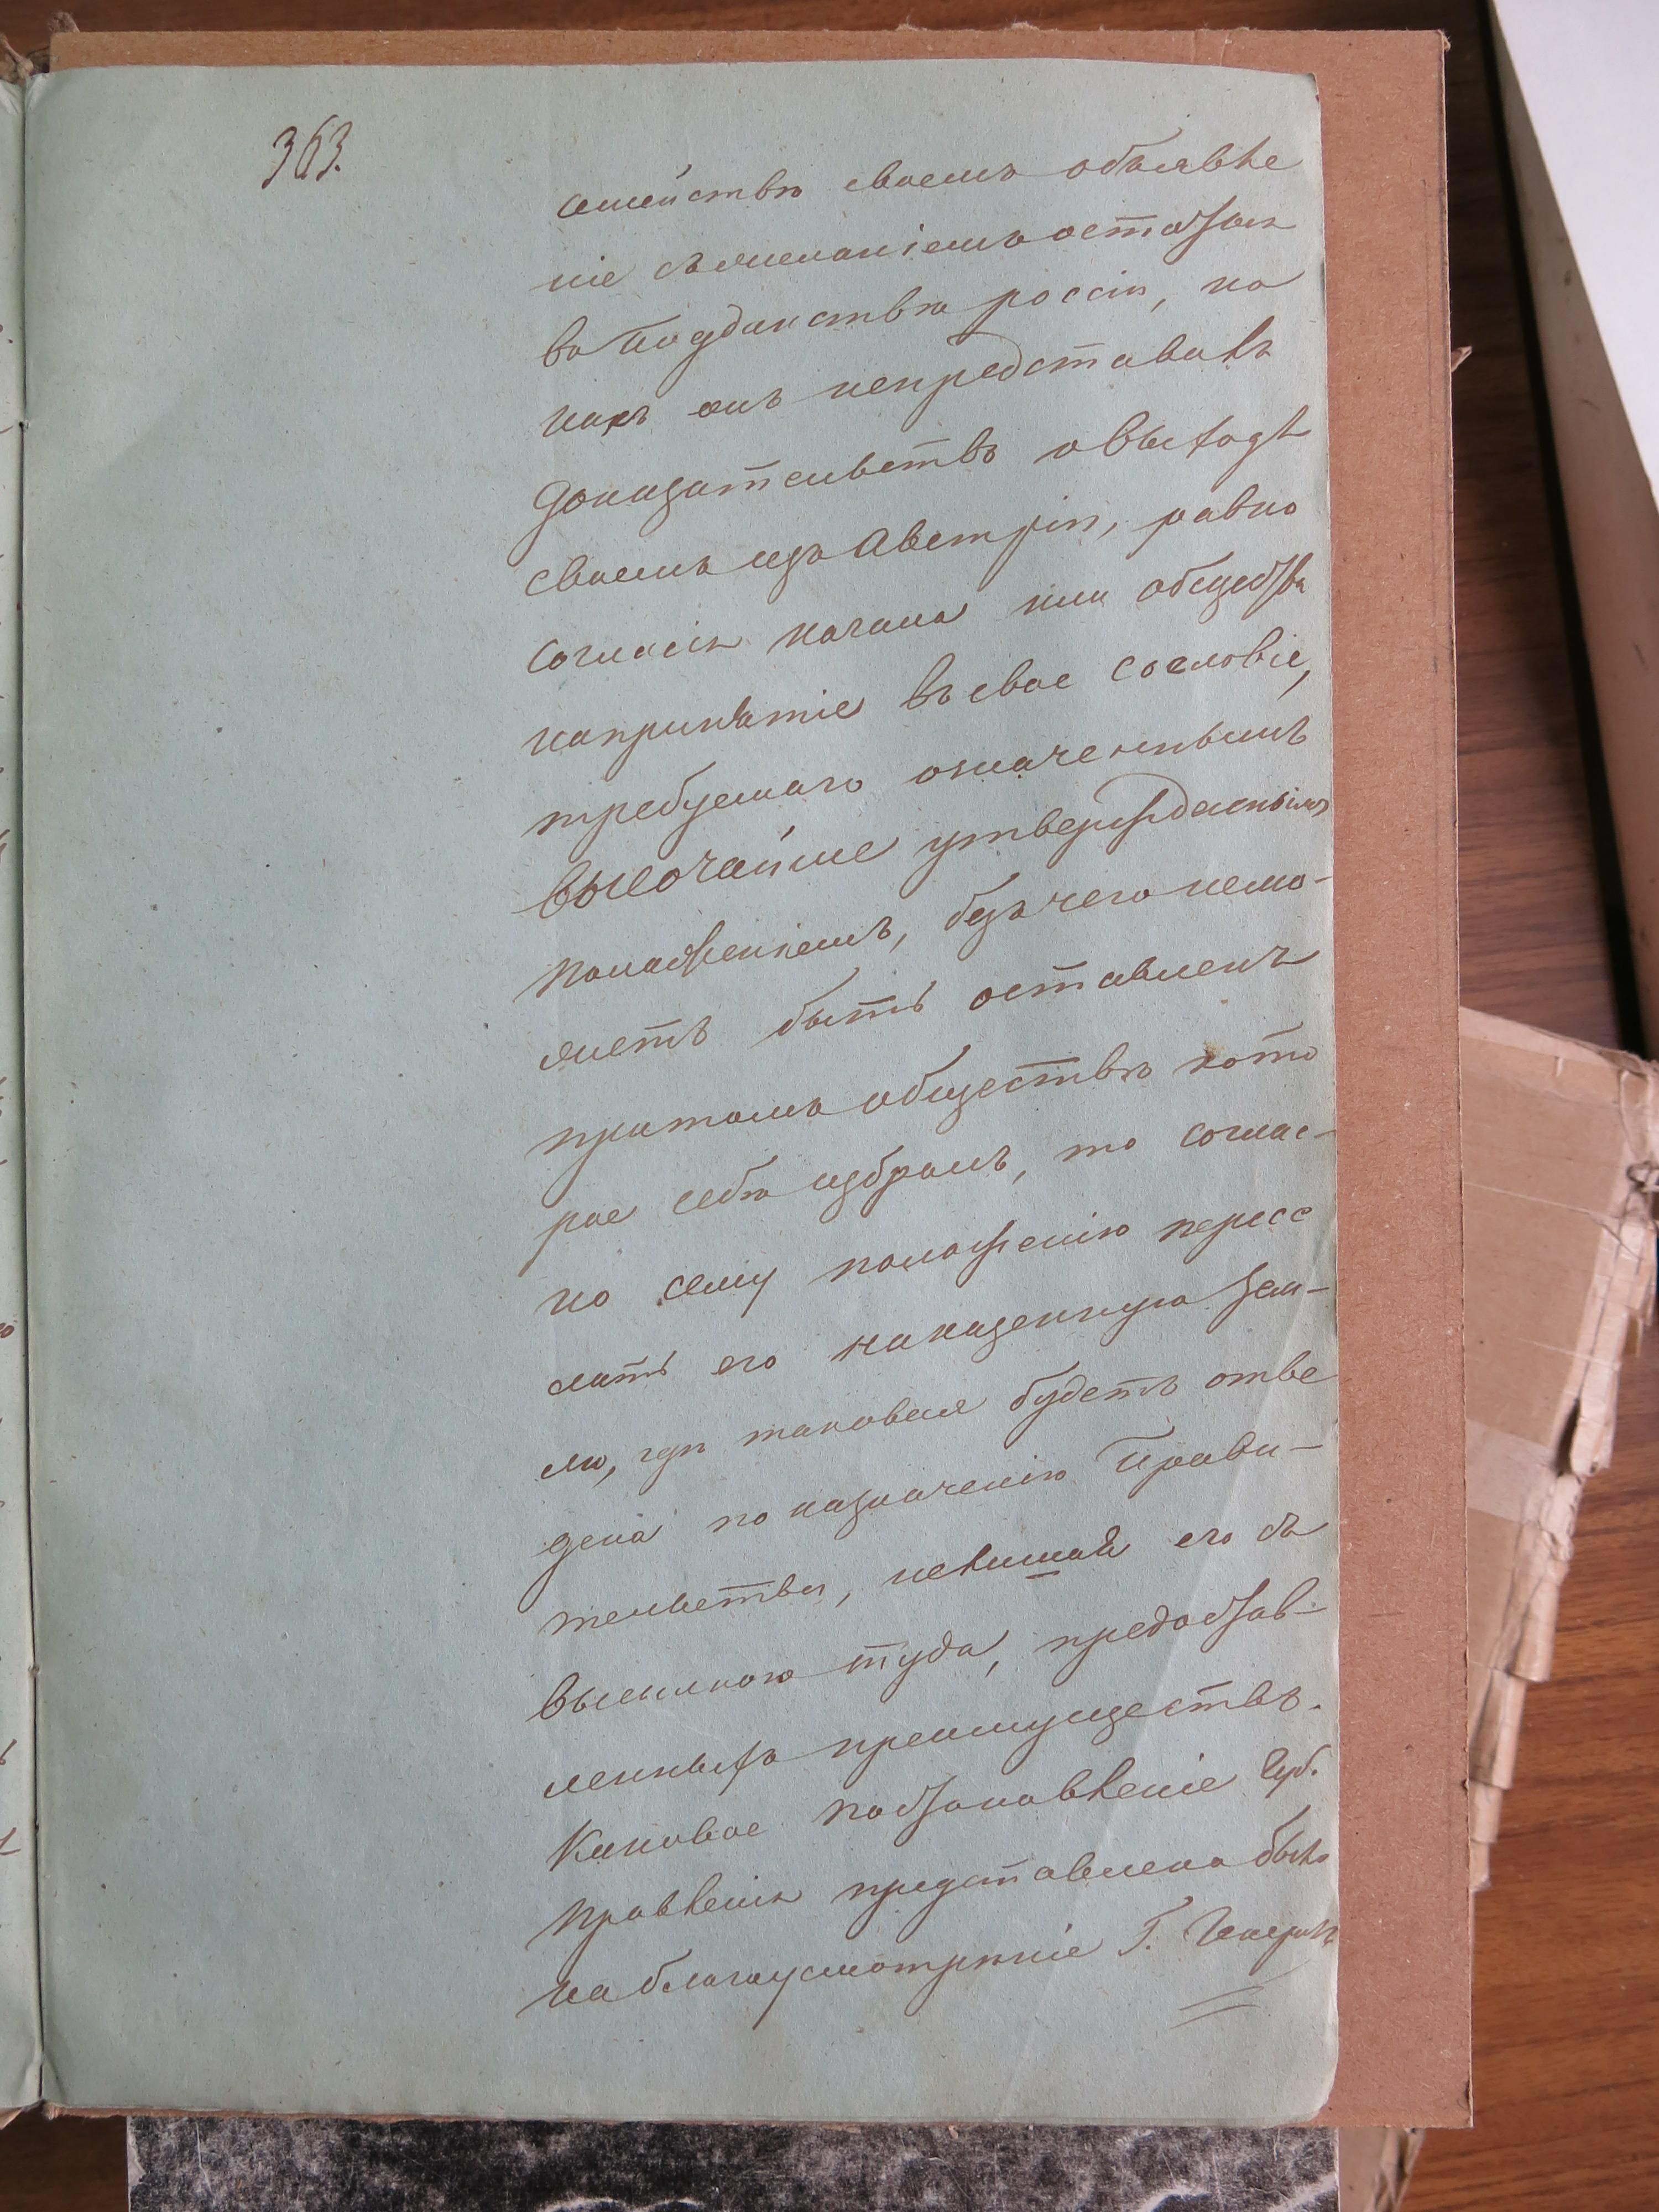 363.
семействѣ своемъ объявле
ніе съ желаніемъ остаться
въ подданствѣ россіи, но
какъ онъ непредставилъ
доказательствъ овыходѣ
своемъ изъ Австріи, равно
согласія кагала или общества
напринятіе въ свое сословіе,
требуемаго означеннымъ
высочайше утвержденнымъ
положеніемъ, безъ чего немо-
жетъ быть оставленъ
притомъ обществѣ кото
рое себѣ избралъ, то соглас-
но сему положенію пересе
лить его наказенную зем-
лю, гдѣ таковая будетъ отве
дена по назначенію Прави-
тельства, нелишай его съ
высылкою туда, предостав-
ленныхъ преимуществъ.
Каковое постановленіе Губ.
правленія представлено было
на благоусмотрѣніе Г.